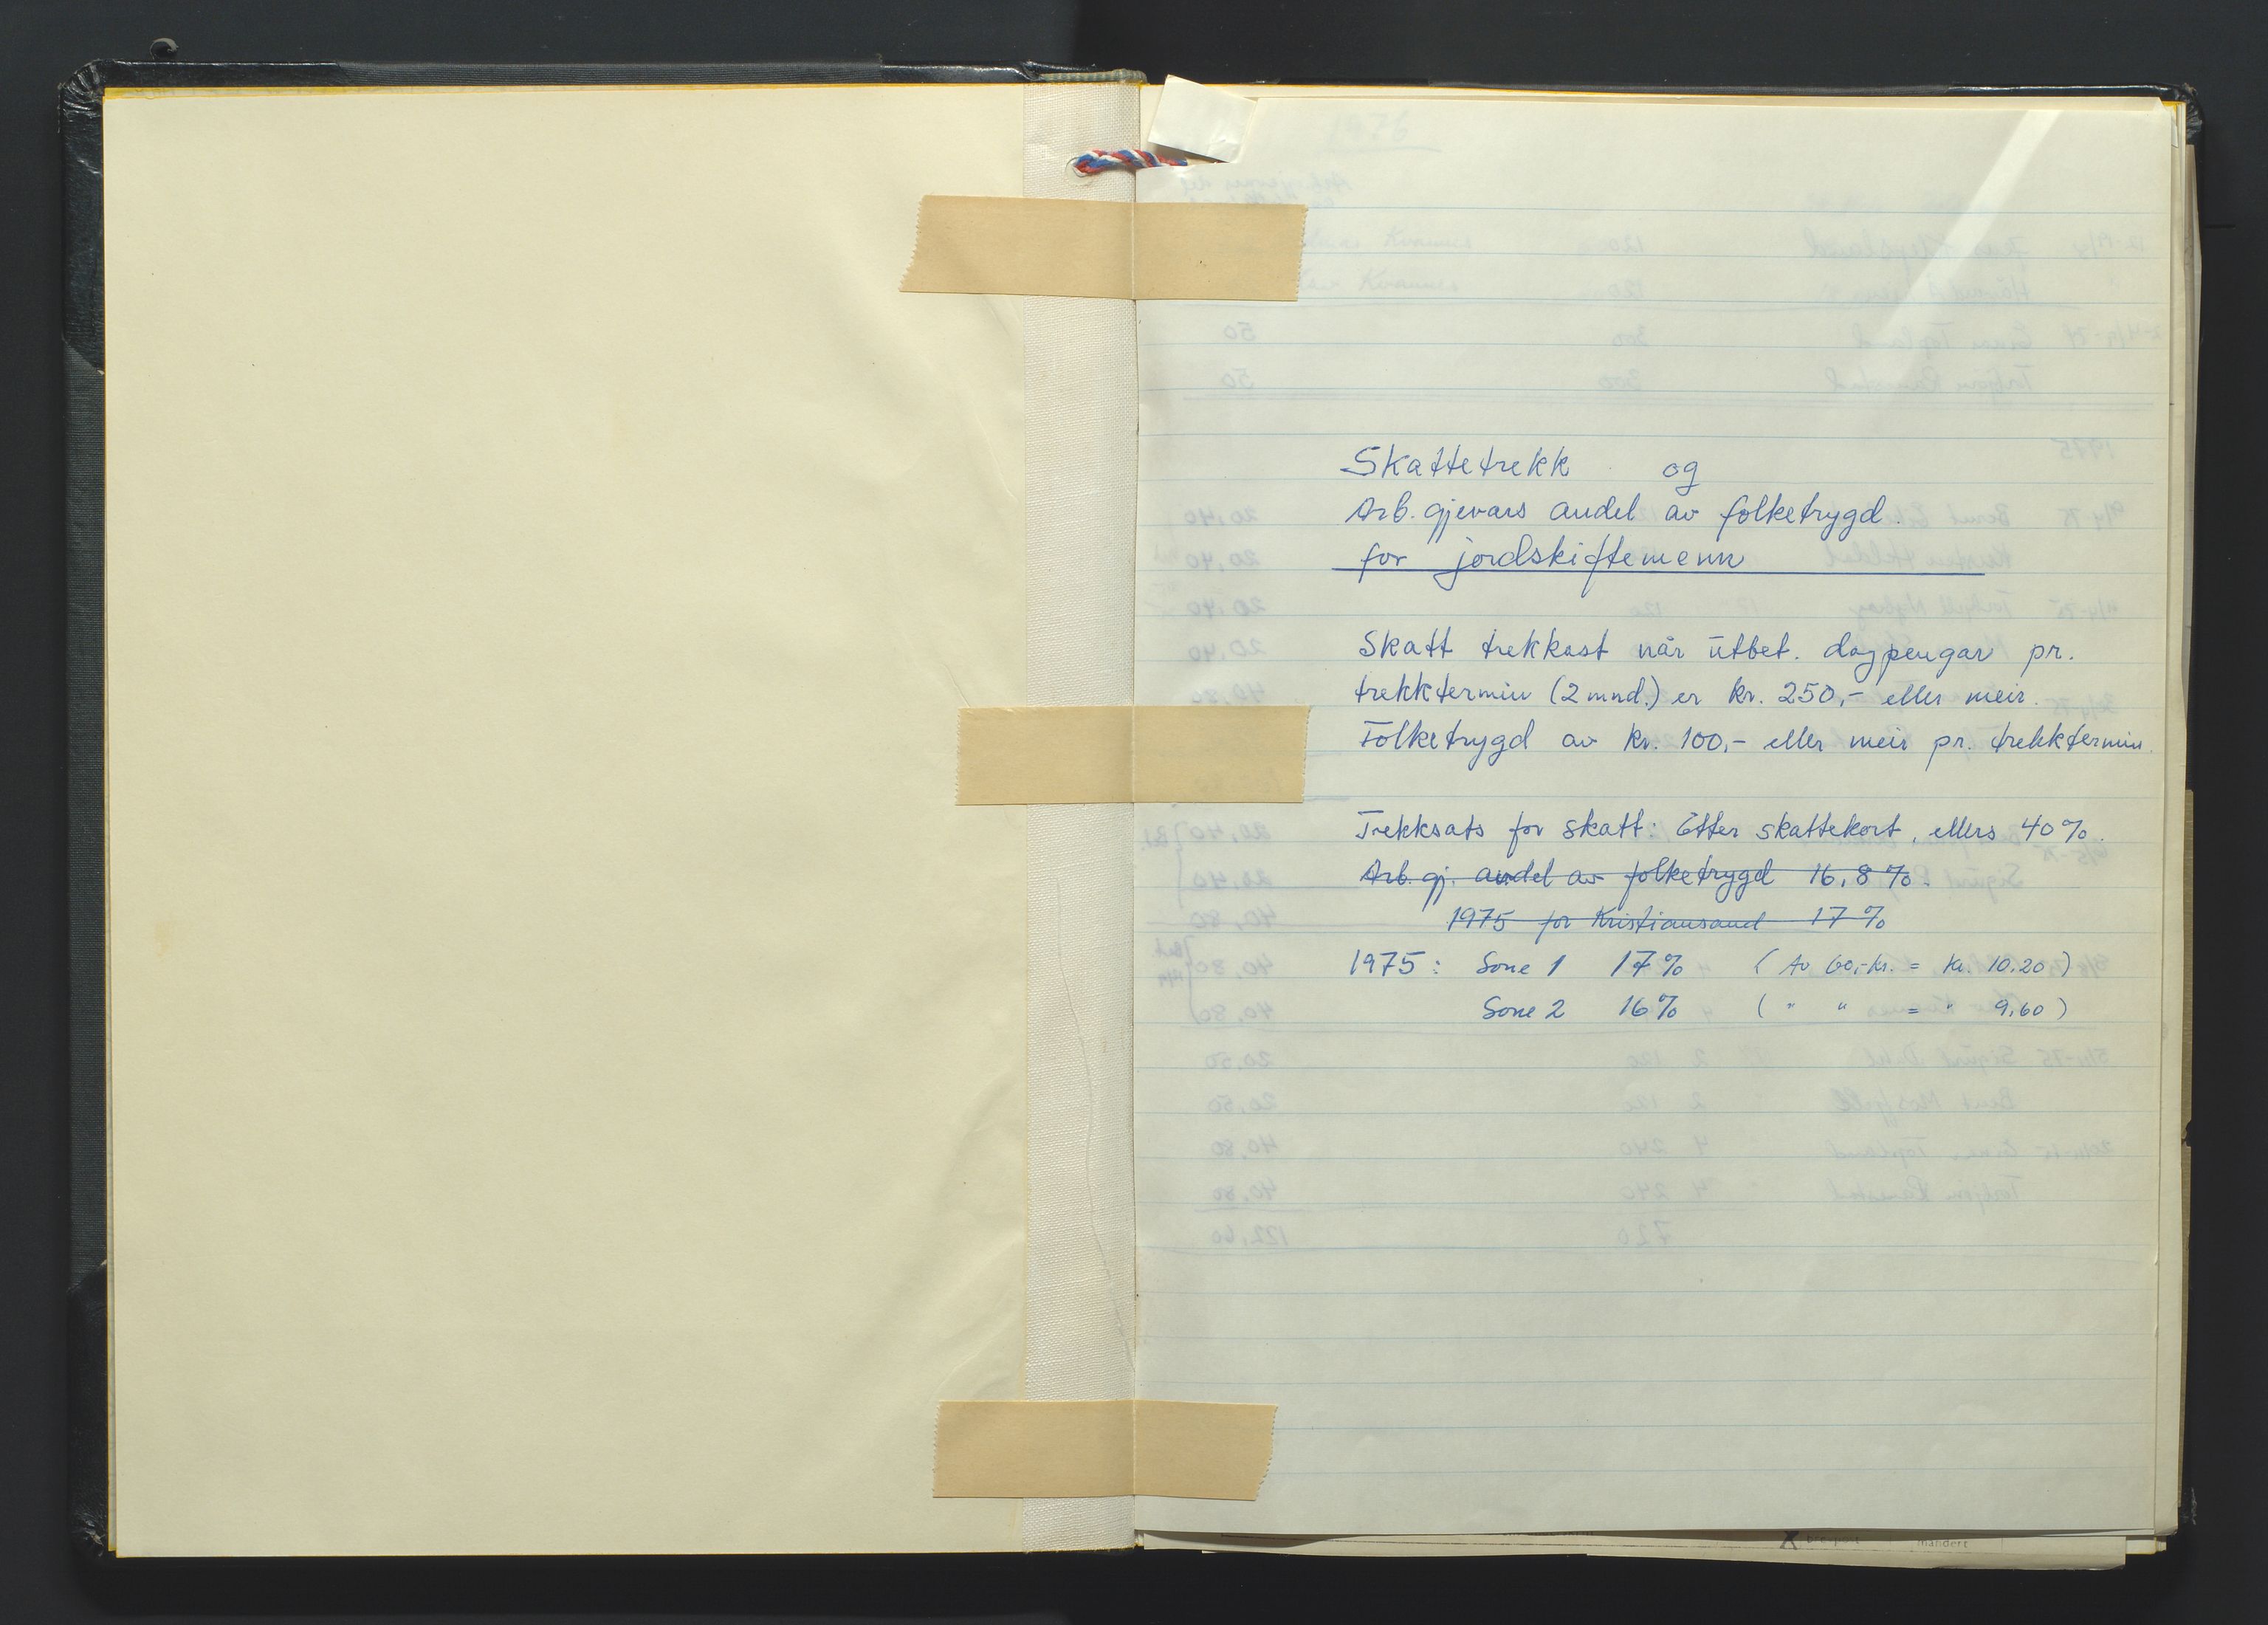 Skattetrekk og
Arb.gjevars andel av folketrygd.
for jordskiftemenn
Skatt trekkast når utbet. dagpengar pr.
trekktermin (2 mnd.) er kr. 250,- eller meir.
Folketrygd av kr. 100,- eller meir pr. trekktermin.
Trekksats for skatt: Etter skattekort, ellers 40%.
Arb.gj. andel av folketrygd 16,8%.
1975 for Kristiansand 17%
1975: Sone 1 17% (Av 60,-kr. = kr. 10.20)
Sone 2 16% (" " = " 9,60)